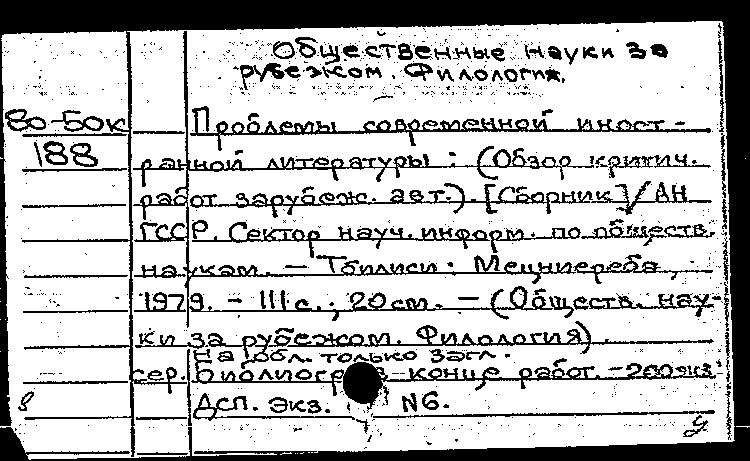 Общественные науки за
рубежом. Филология.
80-50к Проблемы современной иност-
188 ранной литературы : (Обзор критич.
работ зарубеж. авт.). [Сборник] / АН
ГССР. Сектор науч. информ. по обществ.
наукам. — Тбилиси : Мецниереба,
1979. - 111 с. ; 20 см. — (Обществ. нау-
ки за рубежом. Филология).
На обл. только загл.
сер. Библиогр в конце работ. - 200 экз.
Дсп. Экз. N6.